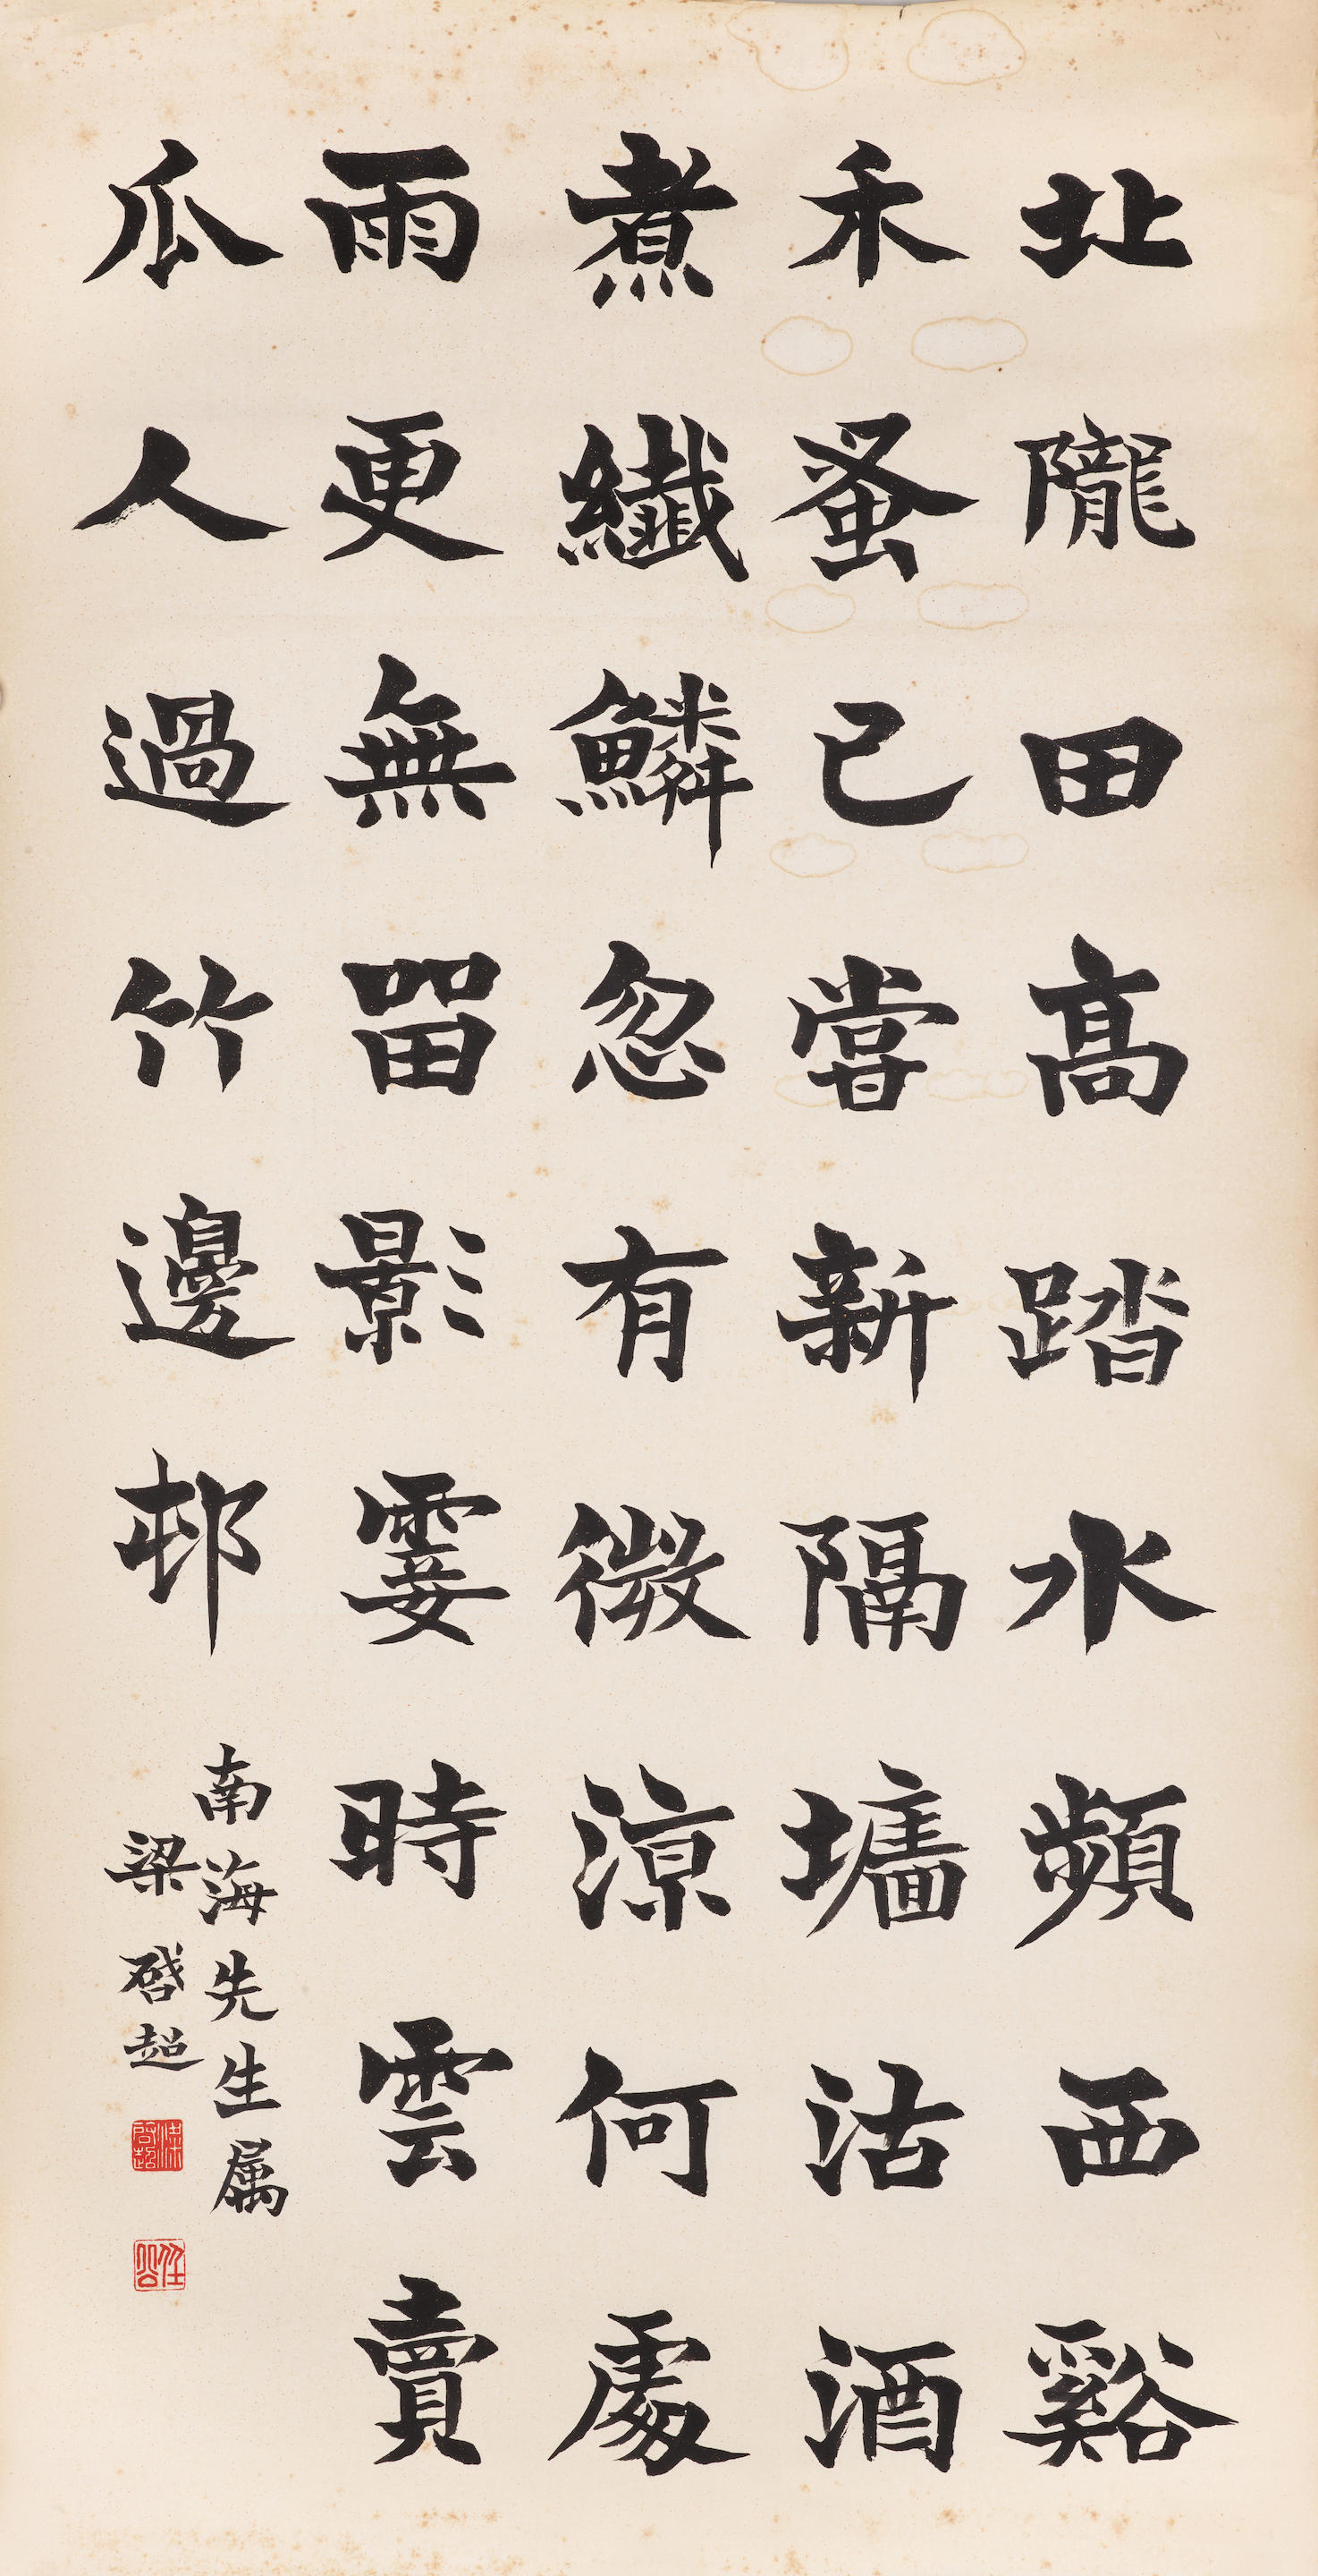 北隴田高踏水頻西谿
禾蚤已嘗新隔墻沽酒
煮纖鱗忽有微涼何處
雨更無留影霎時雲賣
瓜人過竹邊邨
南海先生属
梁啓超
梁啓超
任公